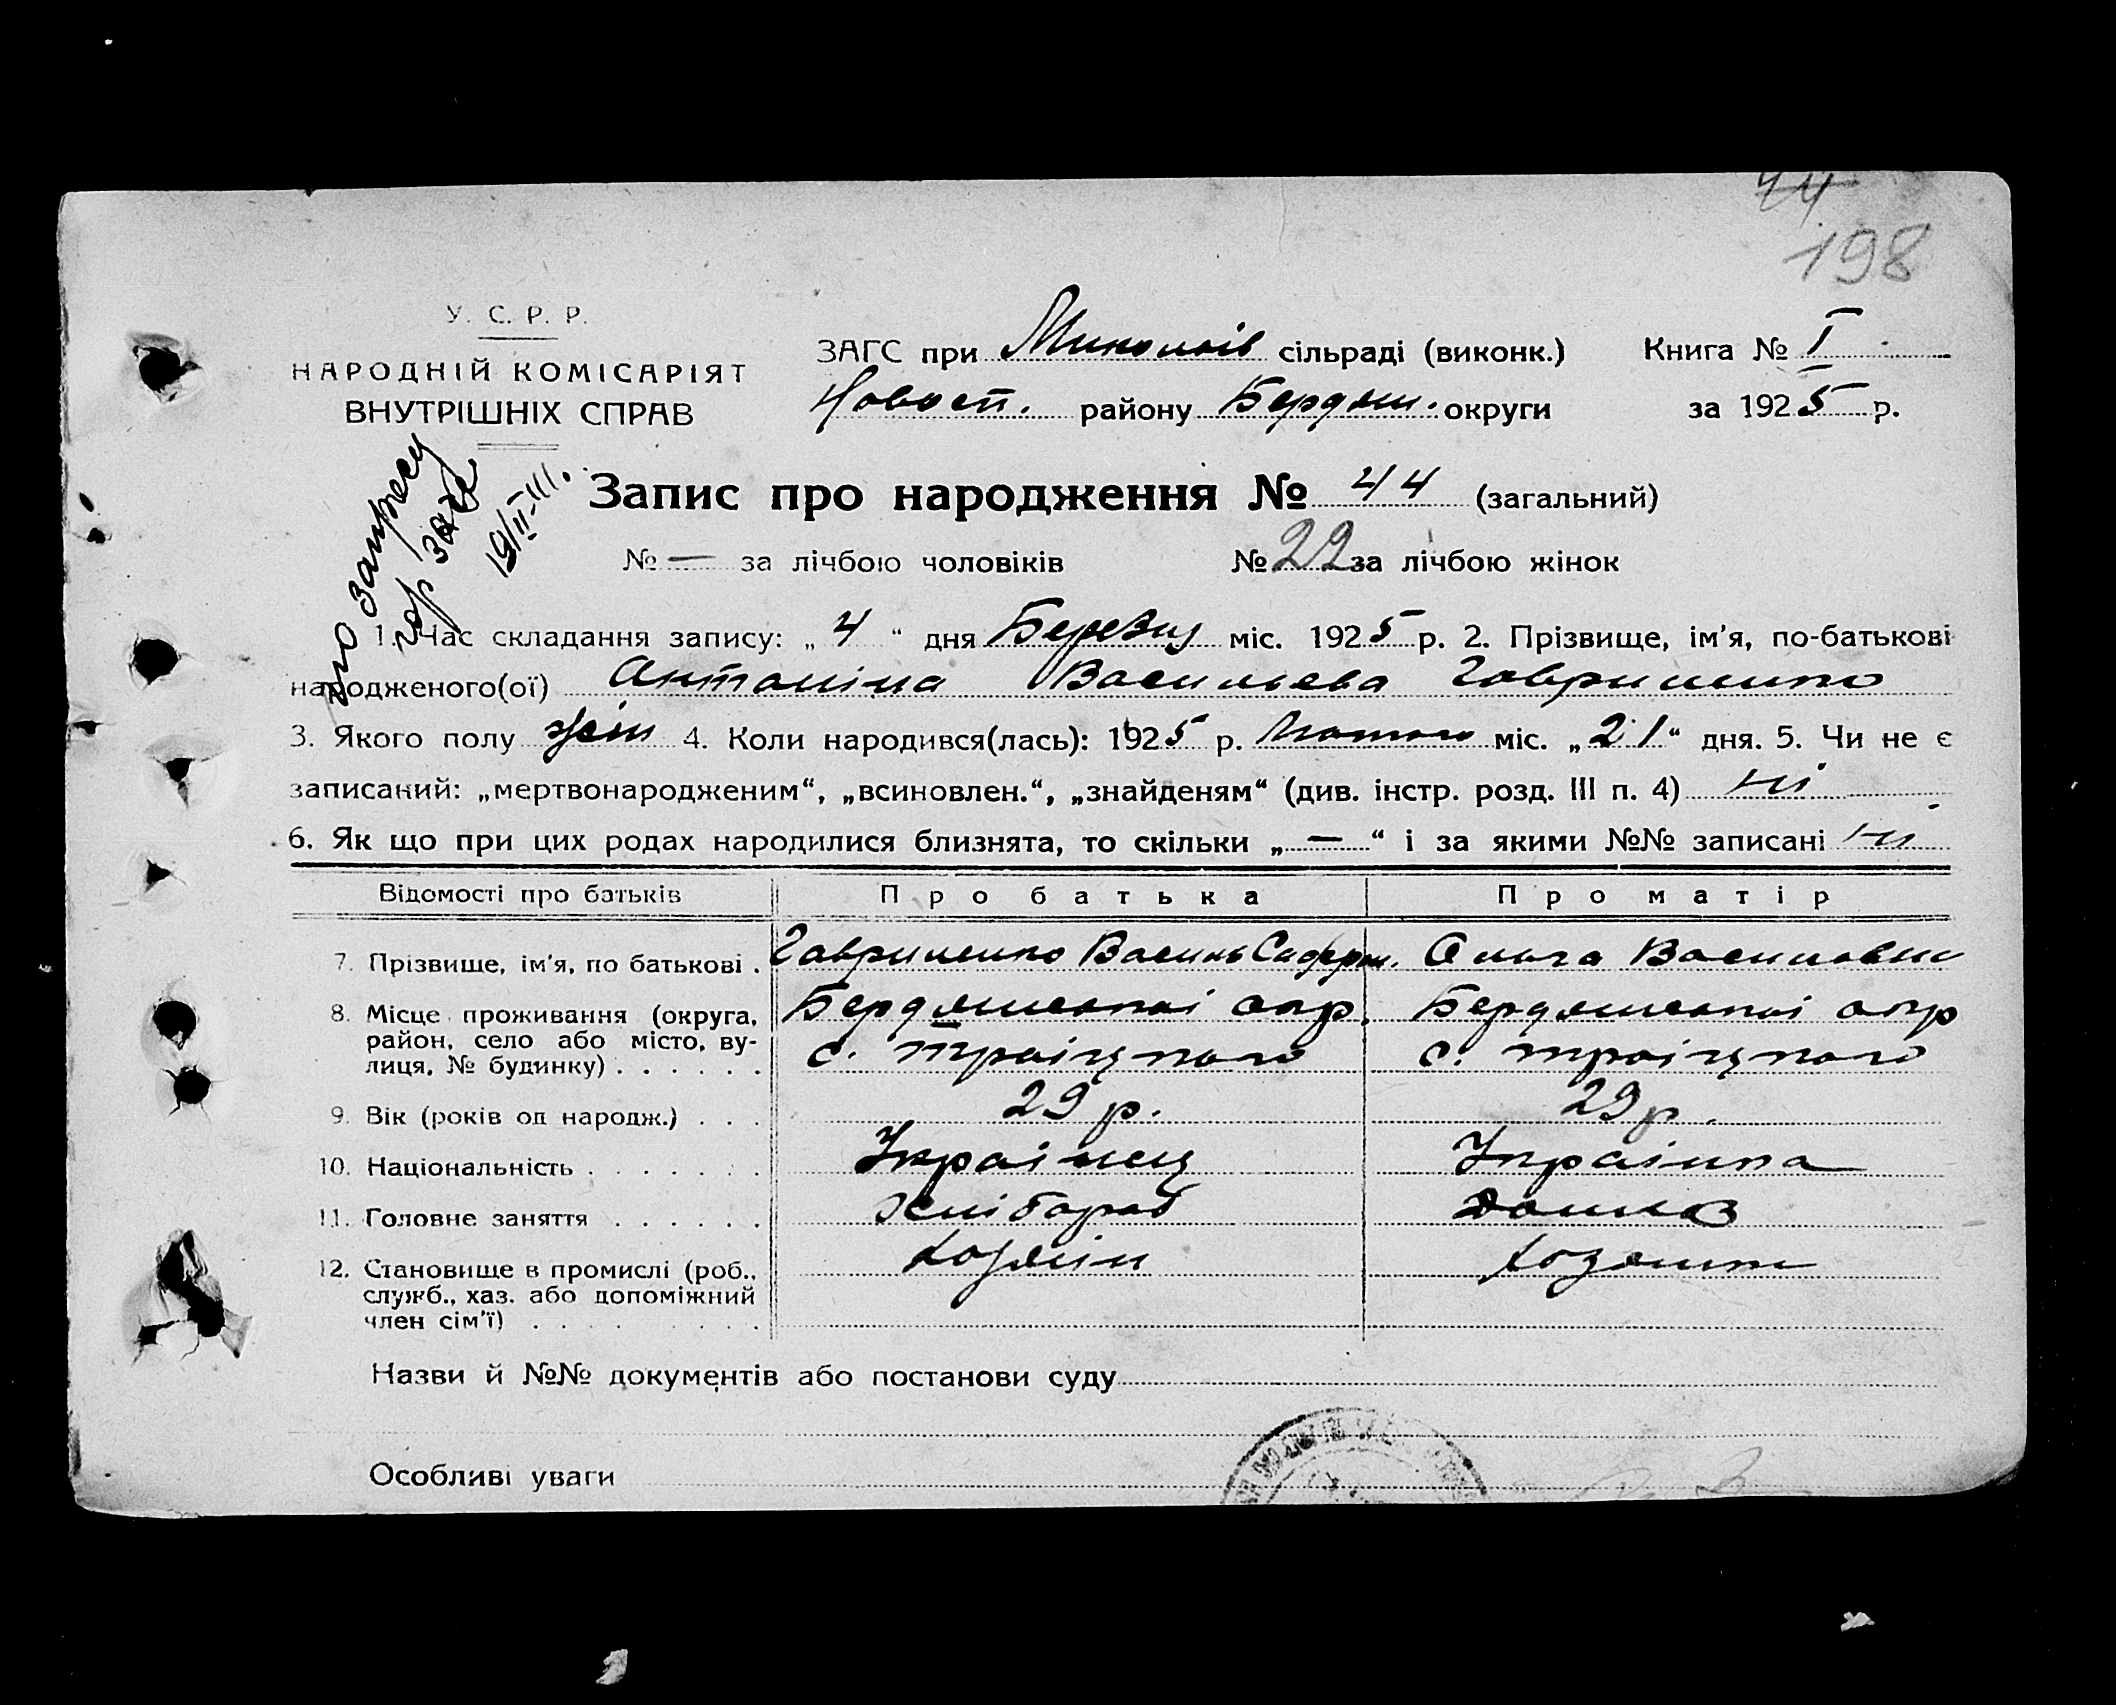 44
198
У. С. Р. Р.
НАРОДНІЙ КОМІСАРІЯТ
ВНУТРІШНІХ СПРАВ
ЗАГС при Миколаїв сільраді (виконк.) Книга № I
Новосп. району Бердян. округи за 1925 р.
по запросу
гор загс
19/II-III.
Запис про народження № 44 (загальний)
№ — за лічбою чоловіків № 22 за лічбою жінок
1. Час складання запису: „ 4 “ дня Березня міс. 1925 р. 2. Прізвище, ім'я, по-батькові
народженого(ої) Антоніна Васильева Гавриленко
3. Якого полу жін 4. Коли народився(лась): 1925 р. Лютого міс. „21“ дня. 5. Чи не є
записаний: „мертвонародженим“, „всиновлен.“, „знайденям“ (див. інстр. розд. III п. 4) ні
6. Як що при цих родах народилися близнята, то скільки „—“ і за якими №№ записані ні
Відомості про батьків Про батька Про матір
7. Прізвище, ім'я, по батькові . Гавриленко Василь Ольга Василовн
8. Місце проживання (округа, Бердянської окр. Бердянської окр
район, село або місто, ву- с. Троіцкого с. Троіцкого
лиця, № будинку) . . . . . .
9. Вік (років од народж.) . . . 29 р. 29 р.
10. Національність . . . . . . . Украінец Украінка
11. Головне заняття . . . . . . Хлібороб
12. Становище в промислі (роб., Хозяін
служб., хаз. або допоміжний
член сім'ї) . . . . . . . .
Назви й №№ документів або постанови суду
Особливі уваги